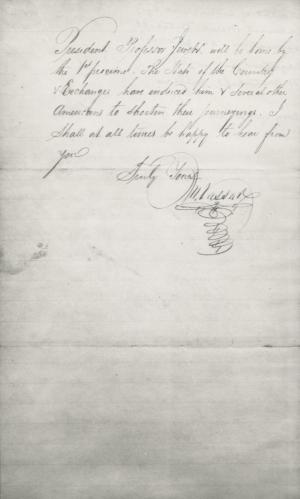 President Professor Jewett will be home by
the 1st proximo. The State of the Country
& Exchanges have induced him & several other
Americans to shorten their journeyings. I
shall at all times be happy to hear from
you
Truly Yours
M. Vassar